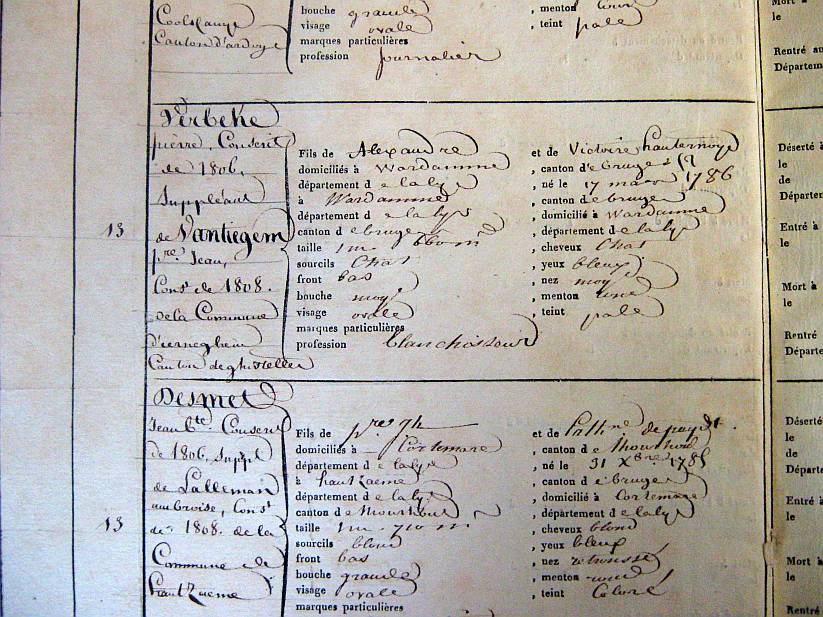 Coolscamp
Canton d'ardoye
bouche grande , menton rond
visage ovale , teint pale
marques particulières
profession journalier
Rentré au
Départem
Verbeke
pierre, Conscrit
de 1806,
Suppléant
13
de Vantiegem
pre. Jean,
Const de 1808.
de la Commune
d'erneghem
Canton de ghistelles
Fils de Alexandre et de Victoire
domiciliés à Wardamme , canton d e bruges
département d e la lys , né le 17 mars 1786
à Wardamme , canton d e bruges
département d e la lys , domicilié à Wardamme
canton d e bruges , département d e la lys
taille 1 m. 660 m , cheveux Chat
sourcils Chat , yeux bleus
front bas , nez moy
bouche moy , menton rond
visage ovale , teint pale
marques particulières
profession blanchisseur
Déserté à
le
de
Départem
Entré à
le
Mort à
le
Rentré
Départe
Desmet
Jean Bte. Conscrit
de 1806, Suppt
de Lalleman
ambroise, Const
13
de 1808. de la
Commune de
hautZaeme
Fils de et de
domiciliés à Cortemarc , canton d e thourhout
département d e la lys , né le 31 Xbre 1785
à hautZaeme , canton d e bruges
département d e la lys , domicilié à Cortemarc
canton d e thourhout , département d e la lys
taille 1 m. 710 m , cheveux blond
sourcils blond , yeux bleux
front bas , nez retroussé
bouche grande , menton rond
visage ovale , teint Coloré
marques particulières
Déserté
le
de
Départe
Entré à
le
Mort à
le
Rentré